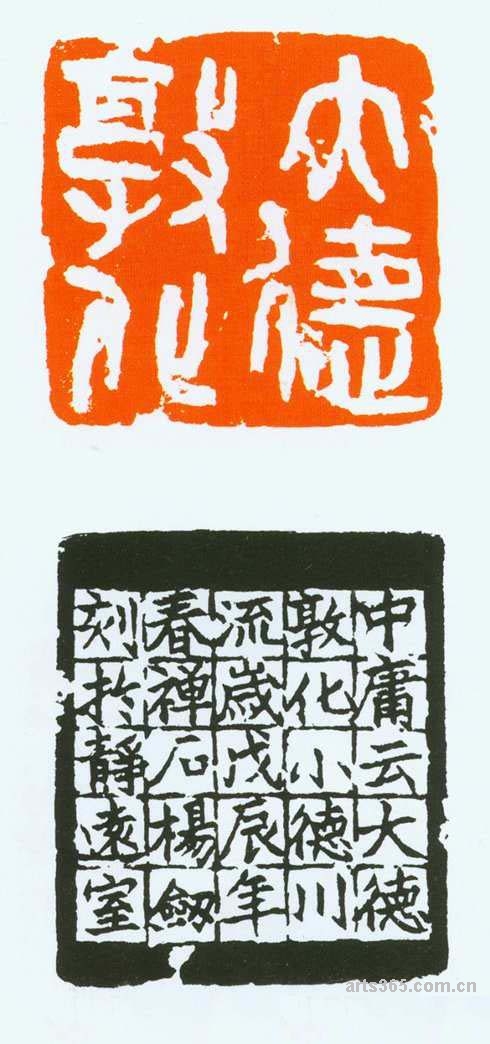 大德
敦化
中庸云大德
敦化小德川
流歲戊辰年
春禅石楊劒
刻於靜遠室
arts365.com.cn